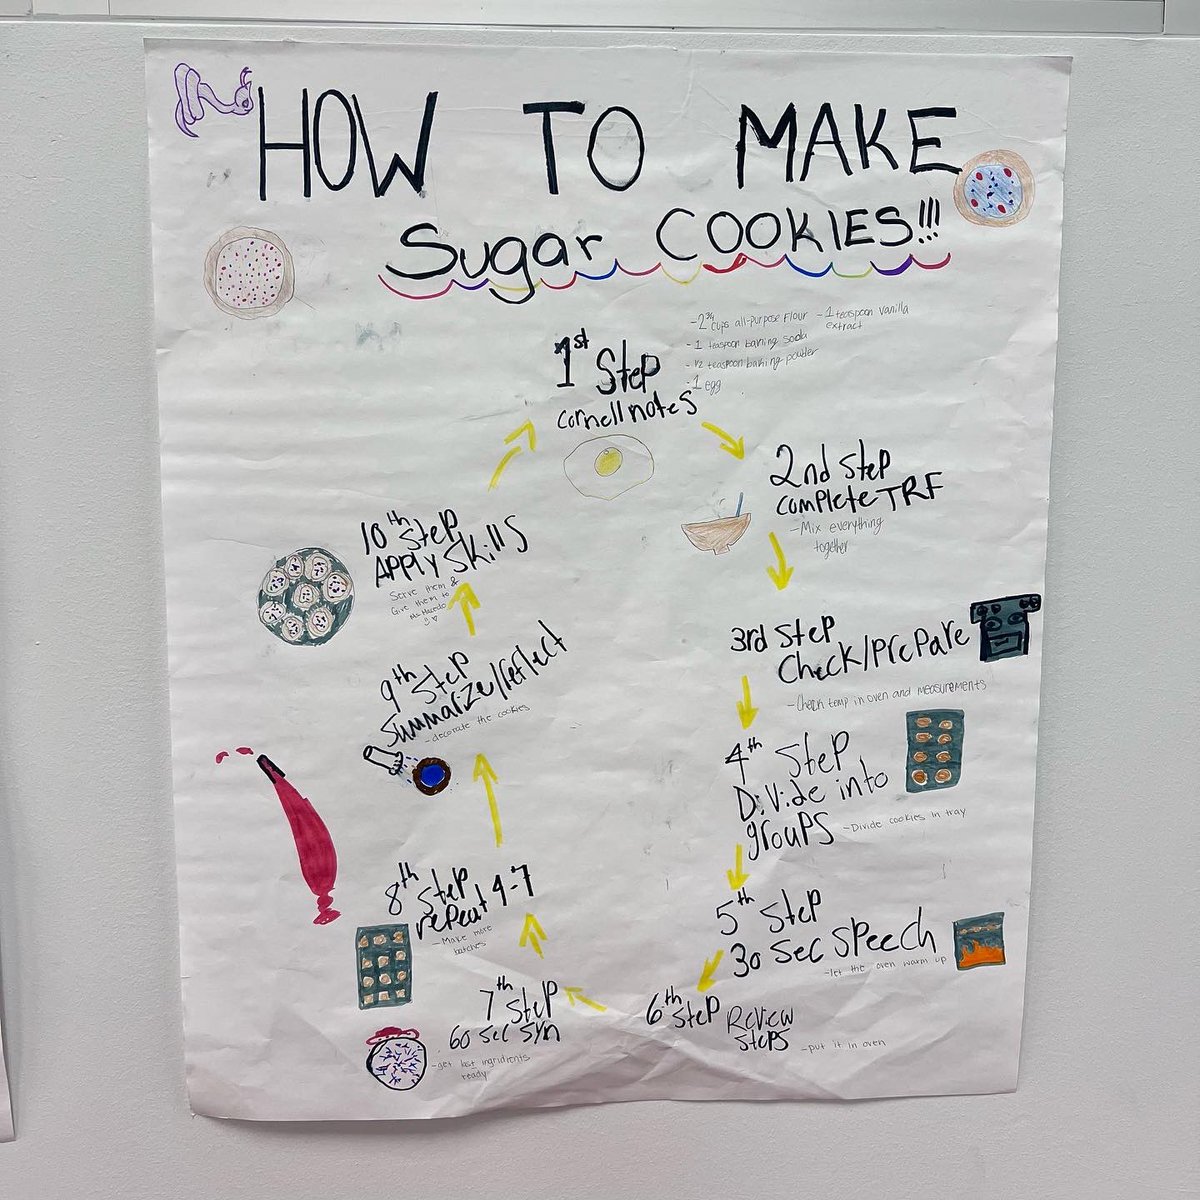 HOW TO MAKE
Sugar COOKIES!!!
1st Step
cornell notes
-2 3/4 cups all-purpose flour
-1 teaspoon baking soda
-1/2 teaspoon baking powder
-1 egg
-1 teaspoon vanilla
extract
2nd Step
complete TRF
-Mix everything
together
3rd Step
Check/Prepare
-Check temp in oven and measurements
4th Step
Divide into
groups
-Divide cookies in tray
5th Step
30 sec speech
-let the oven warm up
6th Step
Review
Steps
-put it in oven
7th Step
60 sec syn
-get last ingridients
ready
8th Step
repeat 4-7
-Make more
batches
9th Step
Summarize/reflect
-decorate the cookies
10th Step
Apply Skills
Serve them &
Give them to